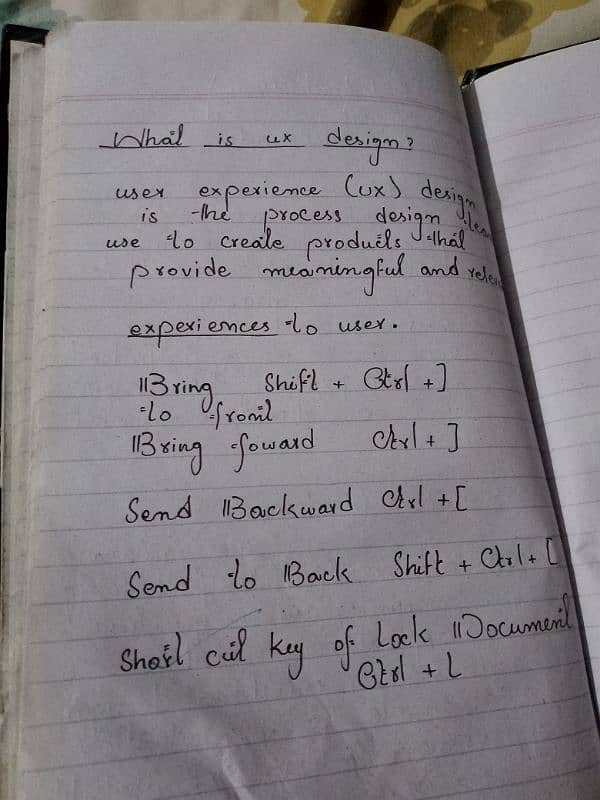 What is ux design?
user experience (ux) design
is the process design team
use to create products that
provide meaningful and
experiences to user.
Bring Shift + Ctrl + ]
to front
Bring foward Ctrl + ]
Send Backward Ctrl + [
Send to Back Shift + Ctrl + [
Short cut key of Lock Document
Ctrl + L